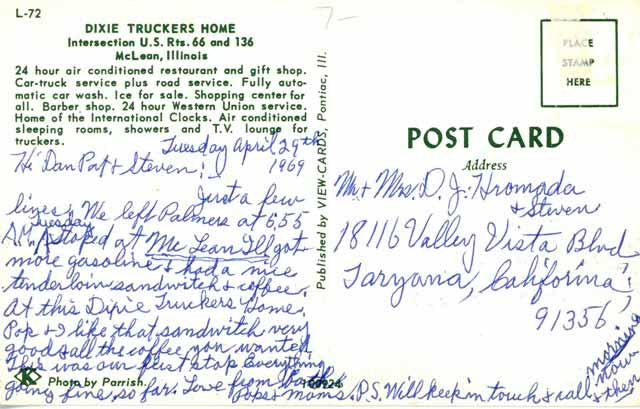 L-72
DIXIE TRUCKERS HOME
Intersection U.S. Rts. 66 and 136
McLean, Illinois
24 hour air conditioned restaurant and gift shop.
Car-truck service plus road service. Fully auto-
matic car wash. Ice for sale. Shopping center for
all. Barber shop. 24 hour Western Union service.
Home of the International Clocks. Air conditioned
sleeping rooms, showers and T.V. lounge for
truckers.
Tuesday April 29th
1969
Hi Dan Pat + Steven!
Just a few
lines. We left Palmers at 6,55
A.M. Tuesday stoped at Mc Lean Ill got
more gasoline & had a nice
tenderloin sandwitch & coffee.
At this Dixie Truckers Home.
Pop & I like that sandwitch very
good & all the coffee you wanted
This was our first stop Everything
going fine, so far. Love from both
Pops & moms. P.S. Will keep in touch & call
morning
now
& then
Photo by Parrish.
100224
Published by VIEW-CARDS, Pontiac, Ill.
PLACE
STAMP
HERE
POST CARD
Address
Mr + Mrs. D. J. Hromada
& Steven
18116 Valley Vista Blvd
Taryana, California!
91356
K